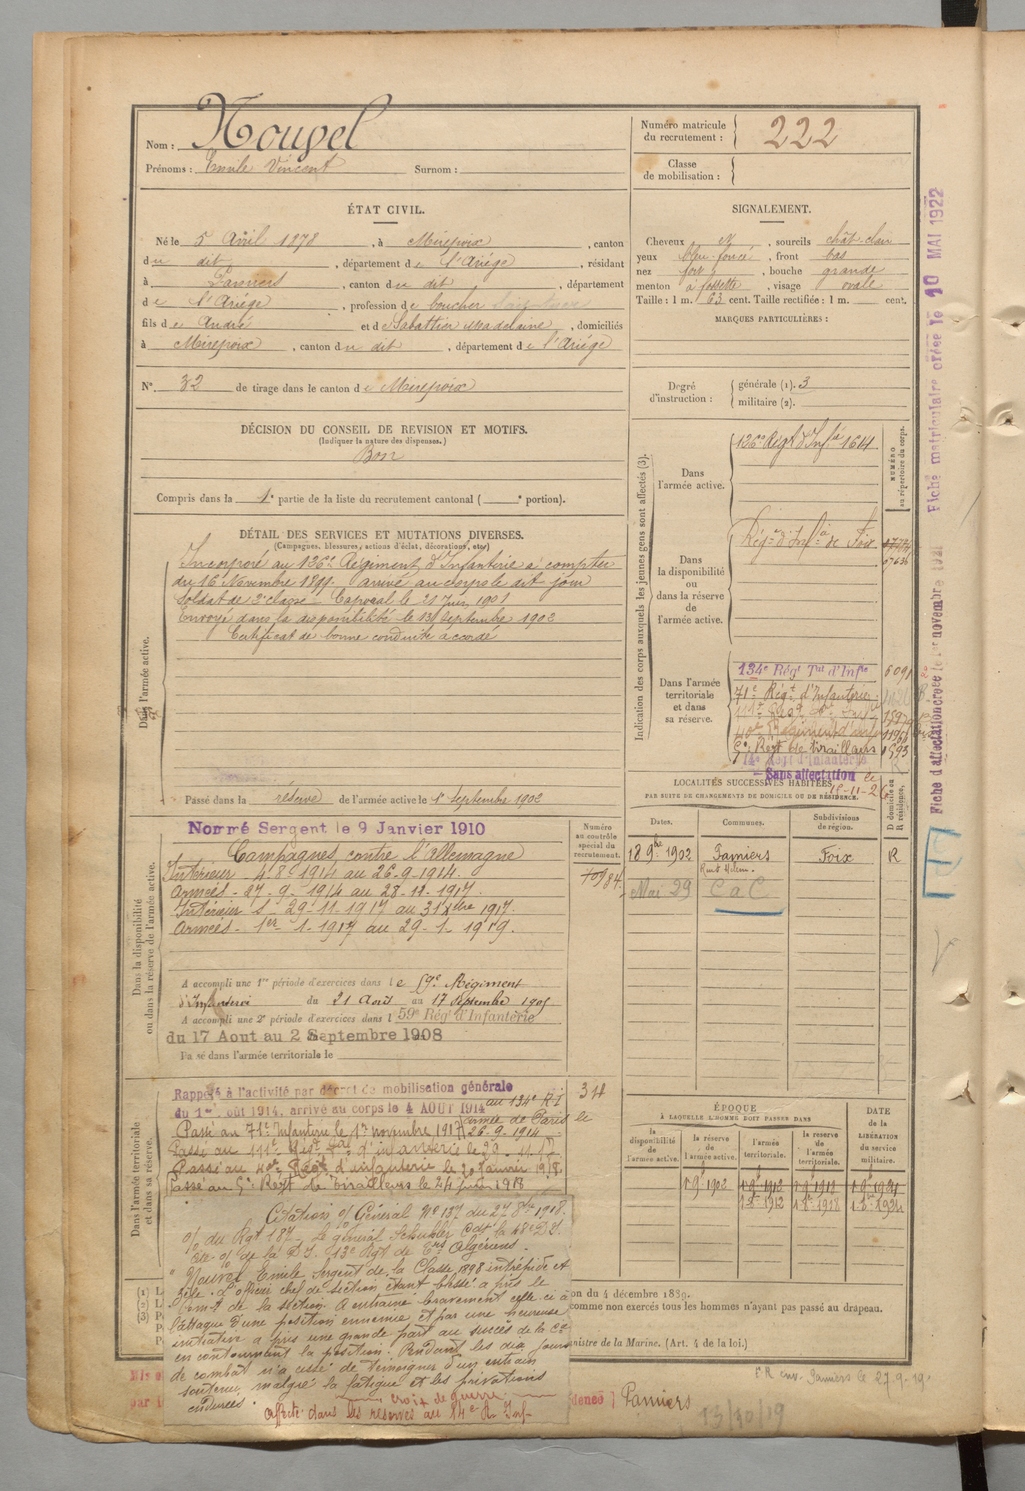 Nom : Nouvel
Prénoms : Emile Vincent Surnom :
Numéro matricule du recrutement : 222
Classe de mobilisation :
ÉTAT CIVIL.
Né le 5 Avril 1878, à Mirepoix, canton
du dit, département de l'Ariège, résidant
à Pamiers, canton du dit, département
de l'Ariège, profession de boucher
fils de André et de Sabattier Madelaine, domiciliés
à Mirepoix, canton du dit, département de l'Ariège
N° 32 de tirage dans le canton de Mirepoix
SIGNALEMENT.
Cheveux et, sourcils chât-clair
yeux bleu-foncé, front bas
nez fort, bouche grande
menton à fossette, visage ovale
Taille : 1 m. 63 cent. Taille rectifiée : 1 m. cent.
MARQUES PARTICULIÈRES :
Degré d'instruction : générale (1). 3
militaire (2).
DÉCISION DU CONSEIL DE REVISION ET MOTIFS.
(Indiquer la nature des dispenses.)
Bon
Compris dans la 1e partie de la liste du recrutement cantonal ( e portion).
DÉTAIL DES SERVICES ET MUTATIONS DIVERSES.
(Campagnes, blessures, actions d'éclat, décorations, etc.)
Dans l'armée active.
Incorporé au 126e Régiment d'Infanterie à compter
du 16 Novembre 1899. arrivé au corps le dit jour
Soldat de 2e classe. Caporal le 21 Juin 1901
Envoyé dans la disponibilité le 13 Septembre 1902
Certificat de bonne conduite accordé
Passé dans la réserve de l'armée active le 1er Septembre 1902
Indication des corps auxquels les jeunes gens sont affectés (3).
NUMÉRO au répertoire du corps.
Dans l'armée active.
126e Régt d'Infie 1614
Dans la disponibilité ou dans la réserve de l'armée active.
Régt d'Infie de Foix
Dans l'armée territoriale et dans sa réserve.
134e Régt Tal d'Infie
71e Régt d'Infanterie
111e Régt
40e Régiment d'inf
5e Régt de Tirailleurs 1593
14e Regt d'Infanterie
Sans affectation le
-11-26
LOCALITÉS SUCCESSIVES HABITÉES
PAR SUITE DE CHANGEMENTS DE DOMICILE OU DE RÉSIDENCE.
Dates. Communes. Subdivisions de région. D domicile ou R résidence.
18 9bre 1902 Pamiers Foix R
Mai 29 C a C
Dans la disponibilité ou dans la réserve de l'armée active.
Numéro au contrôle spécial du recrutement.
Nommé Sergent le 9 Janvier 1910
Campagnes contre l'Allemagne
Intérieur 4-8-1914 au 26-9-1914.
Armées - 27-9-1914 au 28-11-1917.
Intérieur - 29-11-1917 au 31 Xbre 1917.
Armées - 1er 1-1917 au 29-1-1919.
A accompli une 1re période d'exercices dans le 59e Régiment
d'Infanterie du 21 Août au 17 Septembre 1905
A accompli une 2e période d'exercices dans l 59e Rég' d'Infanterie
du 17 Aout au 2 Septembre 1908
Passé dans l'armée territoriale le
Dans l'armée territoriale et dans sa réserve.
34
Rappelé à l'activité par décret de mobilisation générale
du 1er août 1914. arrivé au corps le 4 AOUT 1914 au 134e R.I
armée de Paris le
Passé au 71e Infanterie le 1er novembre 1917 26-9-1914
Passé au 111e Régt d'infanterie le 29-11-17
Passé au 40e Régt d'infanterie le 20 Janvier 1918
Passé au 5e Regt de Tirailleurs le 24 juin 1918
Citation o/ Général No 137 du 27 8bre 1918.
o/ du Rgt 187. Le général Schuhler Cdt la 48e D.I.
Cite o/ de la D.I. 13e Rgt de Trs Algériens.
" Nouvel Emile Sergent de la Classe 1898 intrépide et
zélé. L'officier chef de section étant blessé a pris le
Cdmt de la section. A entrainé bravement celle-ci à
l'attaque d'une position ennemie et par une heureuse
initiative a pris une grande part au succès de la Cie
en contournant la position. Pendant les dix jours
de combat n'a cessé de témoigner d'un entrain
soutenu, malgré la fatigue et les privations
endurées.
Croix de guerre
Affecté dans les réserves au 14e R. Inf.
ÉPOQUE
À LAQUELLE L'HOMME DOIT PASSER DANS
la disponibilité de l'armée active. la réserve de l'armée active. l'armée territoriale. la réserve de l'armée territoriale.
DATE de la LIBÉRATION du service militaire.
1 9 1902 1 9 1912 1 9 1918 1 9 1924
1 8 1912 1 8 1918 1 8 1924
on du 4 décembre 1889.
comme non exercés tous les hommes n'ayant pas passé au drapeau.
nistre de la Marine. (Art. 4 de la loi.)
dence) Pamiers
FR env. Pamiers le 27-9-19
13/10/19
Fiche d'affectation créée le 1er novembre 1921
Fiche matriculaire créée le 10 MAI 1922